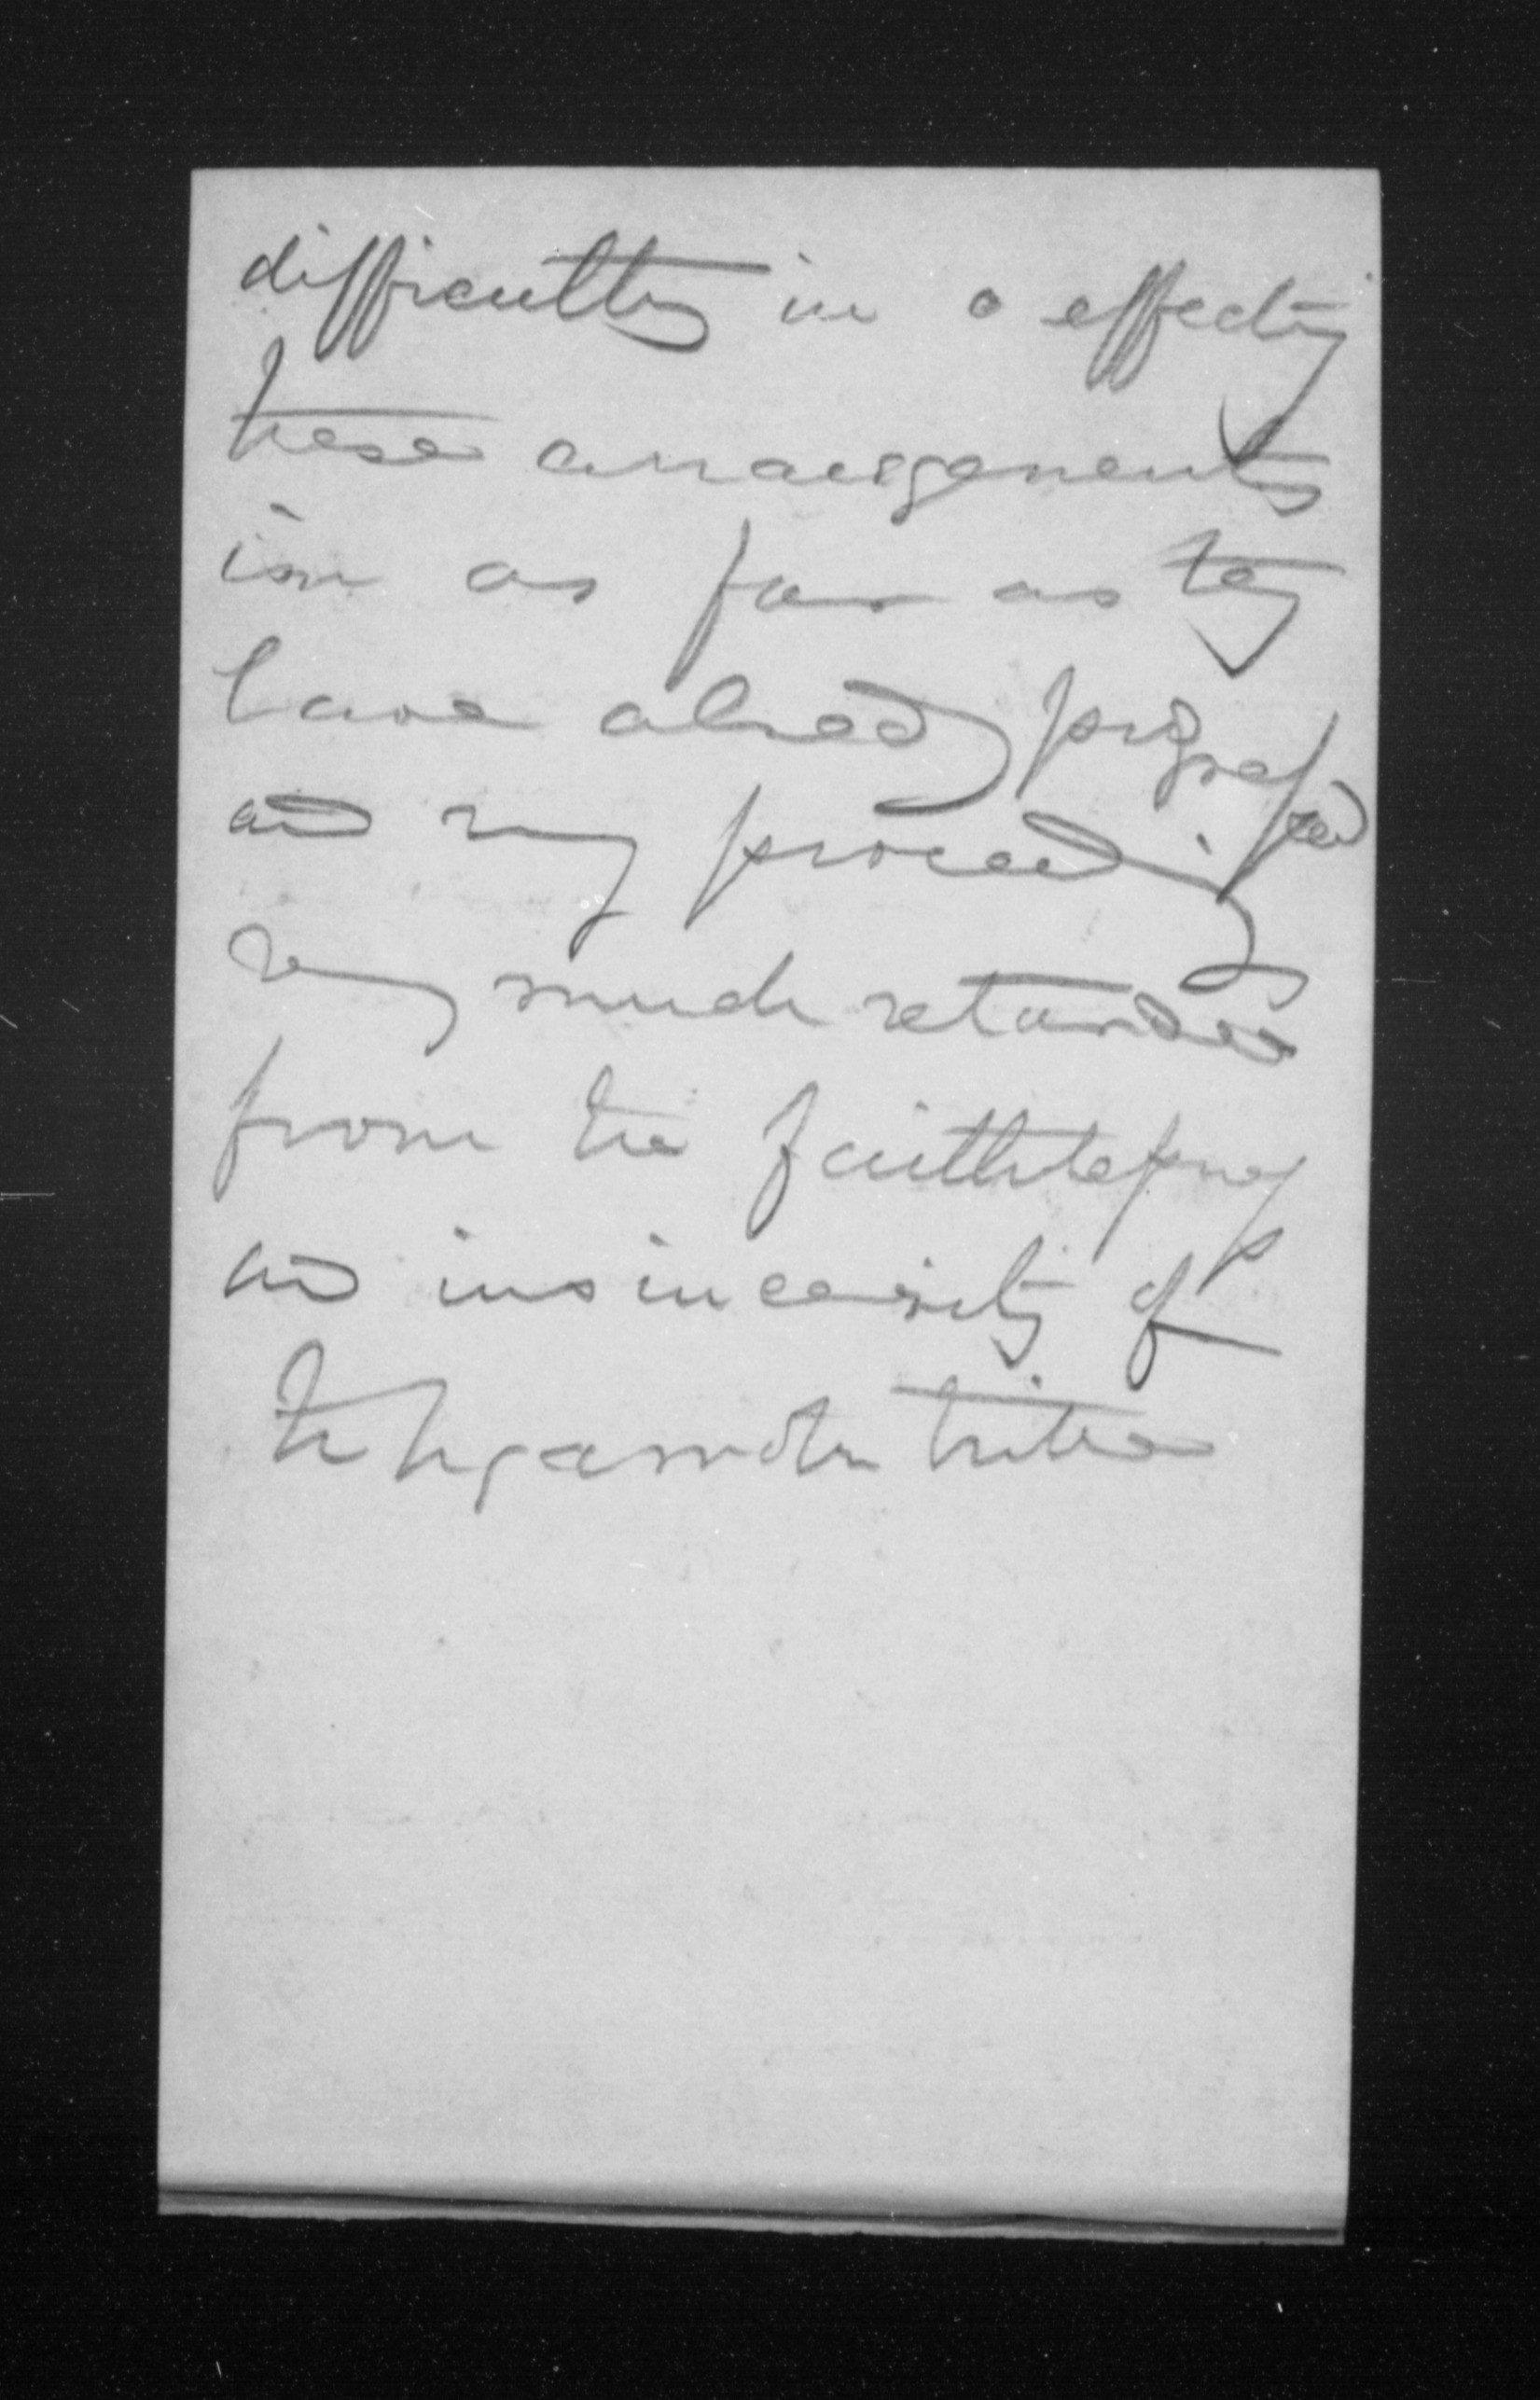 difficulties in a effecting
these arrangements
in as far as they
have already progressed
and my proceedings
very much retarded
from the faithlessness
and insincerity of
the tribes